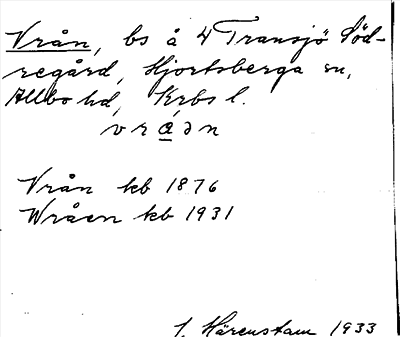 Vrån, bs å 4 Transjö Söd-
regård, Hjortsberga sn,
Allbo hd, Krbs l.
vråən
Vrån kb 1876
Wråen kb 1931
I. Härenstam 1933